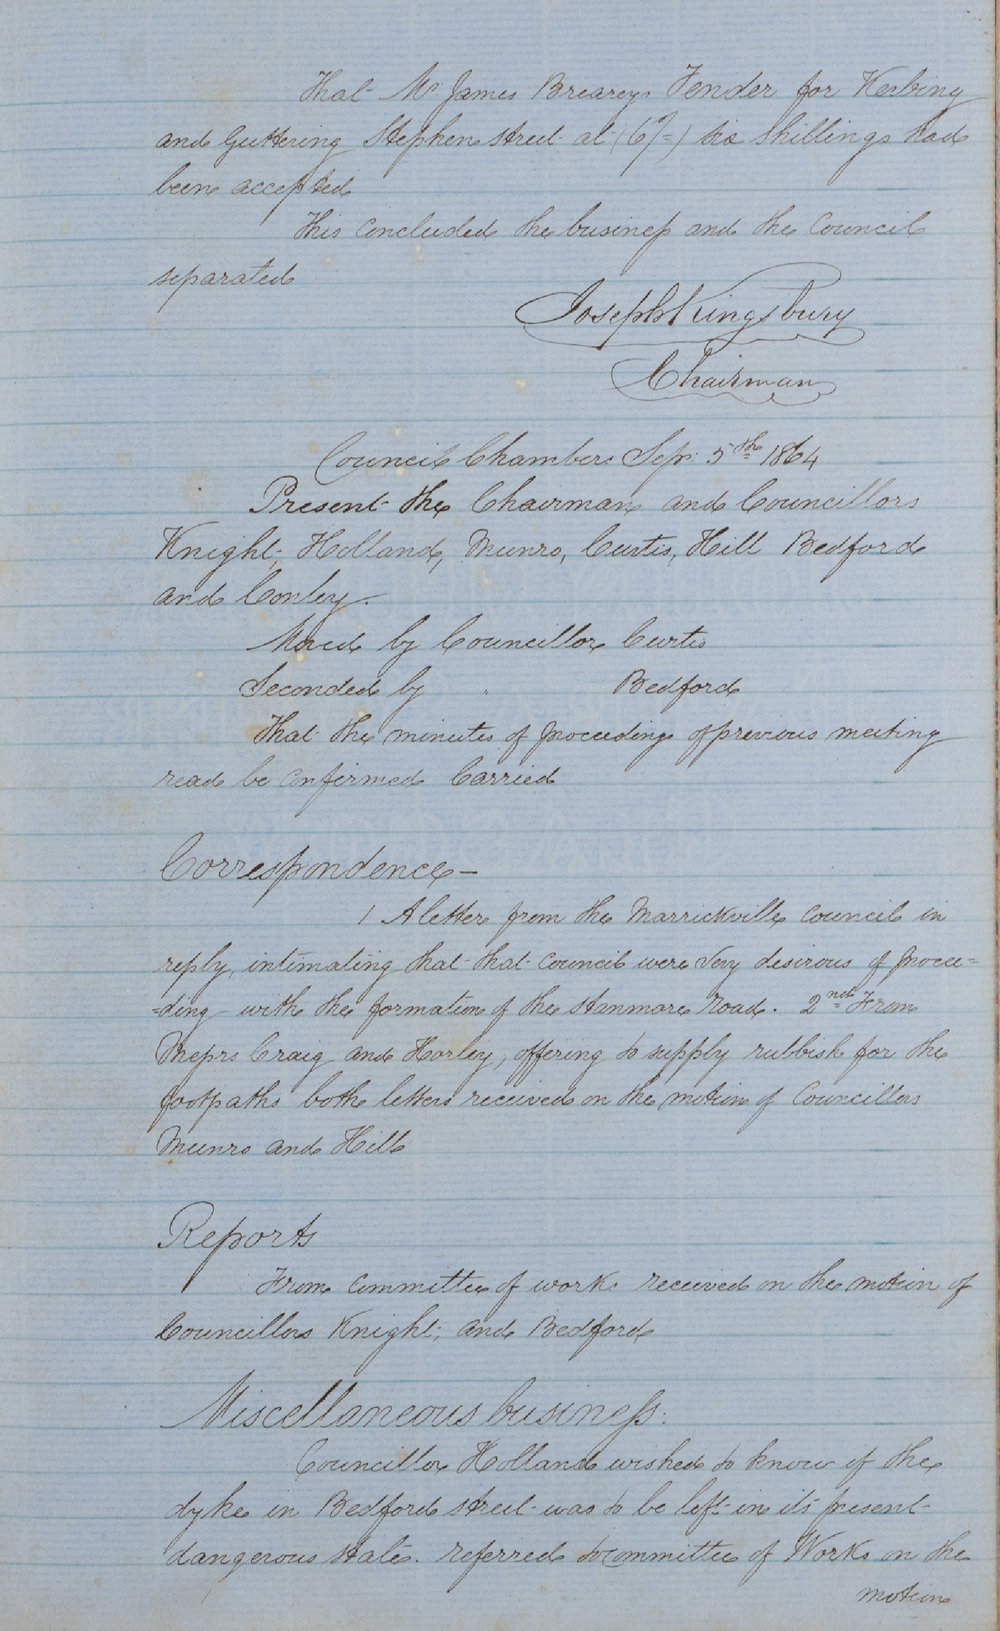 That Mr. James Breareys Tender for Kerbing
and Guttering Stephen Street at (6/=) six shillings had
been accepted
This concluded the business and the Council
separated
Joseph Kingsbury
Chairman
Council Chambers Sep: 5th 1864
Present the Chairman and Councillors
Knight, Holland, Munro, Curtis, Hill Bedford
and Conley.
Moved by Councillor Curtis
Seconded by " Bedford
That the minutes of proceedings of previous meeting
read be confirmed Carried
Correspondence —
1 A letter from the Marrickville Council in
reply, intimating that that council were very desirous of procee=
=ding with the formation of the Stanmore Road. 2nd From
Messrs Craig and Horley, offering to supply rubbish for the
footpaths both letters received on the motion of Councillors
Munro and Hill
Reports
From Committee of works received on the motion of
Councillors Knight, and Bedford
Miscellaneous business:
Councillor Holland wished to know if the
dyke in Bedford Street was to be left in its present
dangerous state. referred to Committee of Works on the
motion